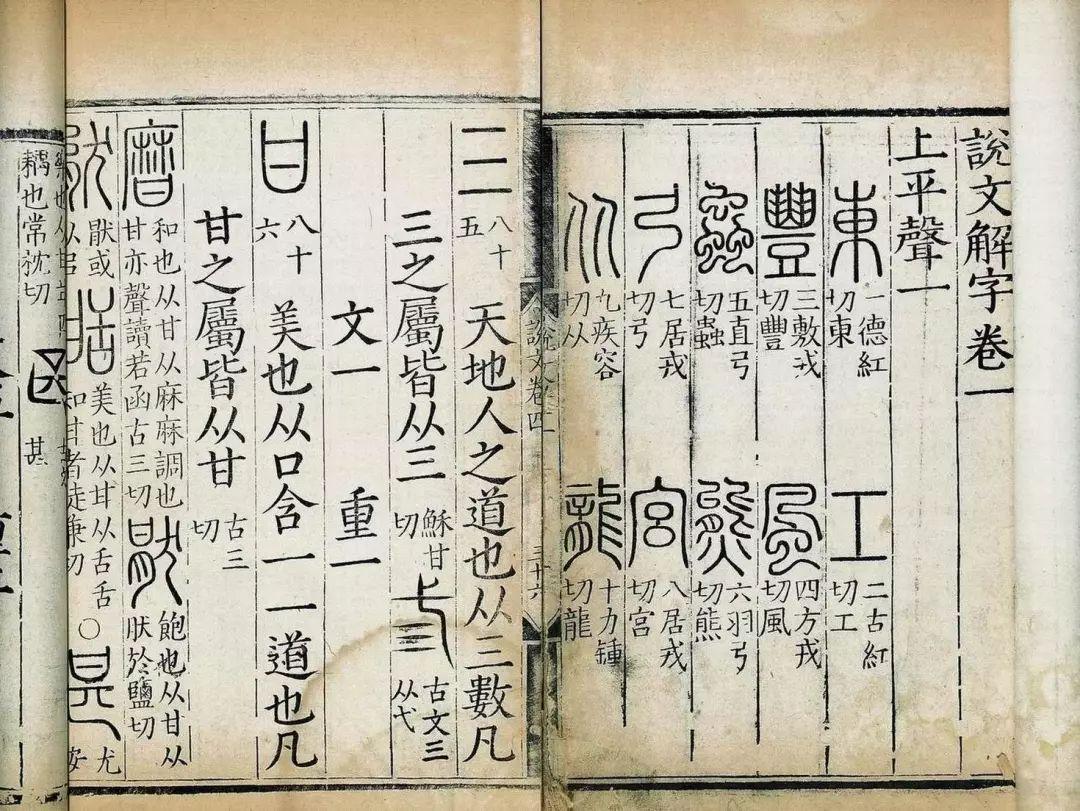 說文解字卷一
上平聲一
東 一德紅切東 工 二古紅切工
豐 三敷戎切豐 風 四方戎切風
蟲 五直弓切蟲 熊 六羽弓切熊
弓 七居戎切弓 宮 八居戎切宮
从 九疾容切从 龍 十力鍾切龍
說文卷四 三十六
三 八十五 天地人之道也从三數凡
三之屬皆从三 穌甘切 弎 古文三从弋
文一 重一
甘 八十六 美也从口含一一道也凡
甘之屬皆从甘 古三切
𤯍 和也从甘从麻麻調也甘亦聲讀若函古三切 猒 飽也从甘从肰於鹽切
猒或从㠯 甛 美也从甘从舌舌知甘者徒兼切 ○ 甚 尤安
耦也常枕切 甚